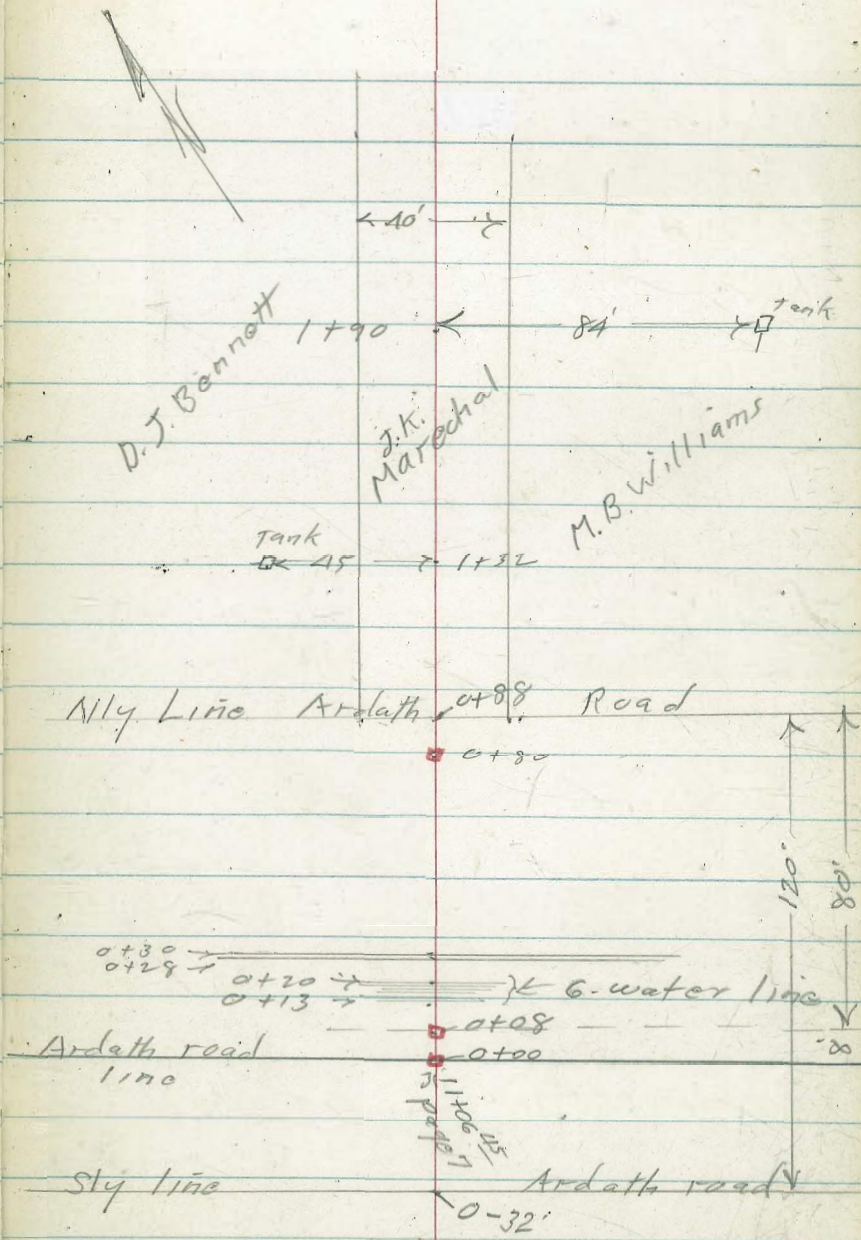 N
40'
1+90 84' Tank
D.J. Bennett
J.K.
Marechal
M.B. Williams
Tank
45 1+32
N'ly Line Ardath 0+88 Road
0+80
120'
80'
0+30
0+28
0+20
0+13
6-water line
0+08
8'
Ardath road
line
0+00
11+06.45
page 7
Sly line Ardath road
0-32'